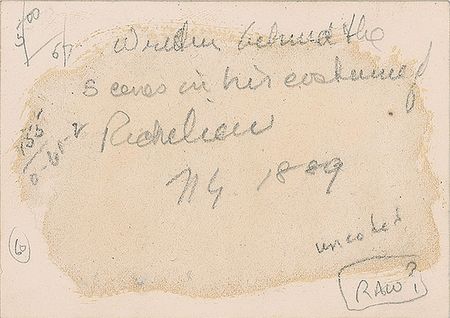 500
67
Written behind the
scenes in his costume of
Richelieu
N.Y. 1889
155
6
uncoded
RAW?